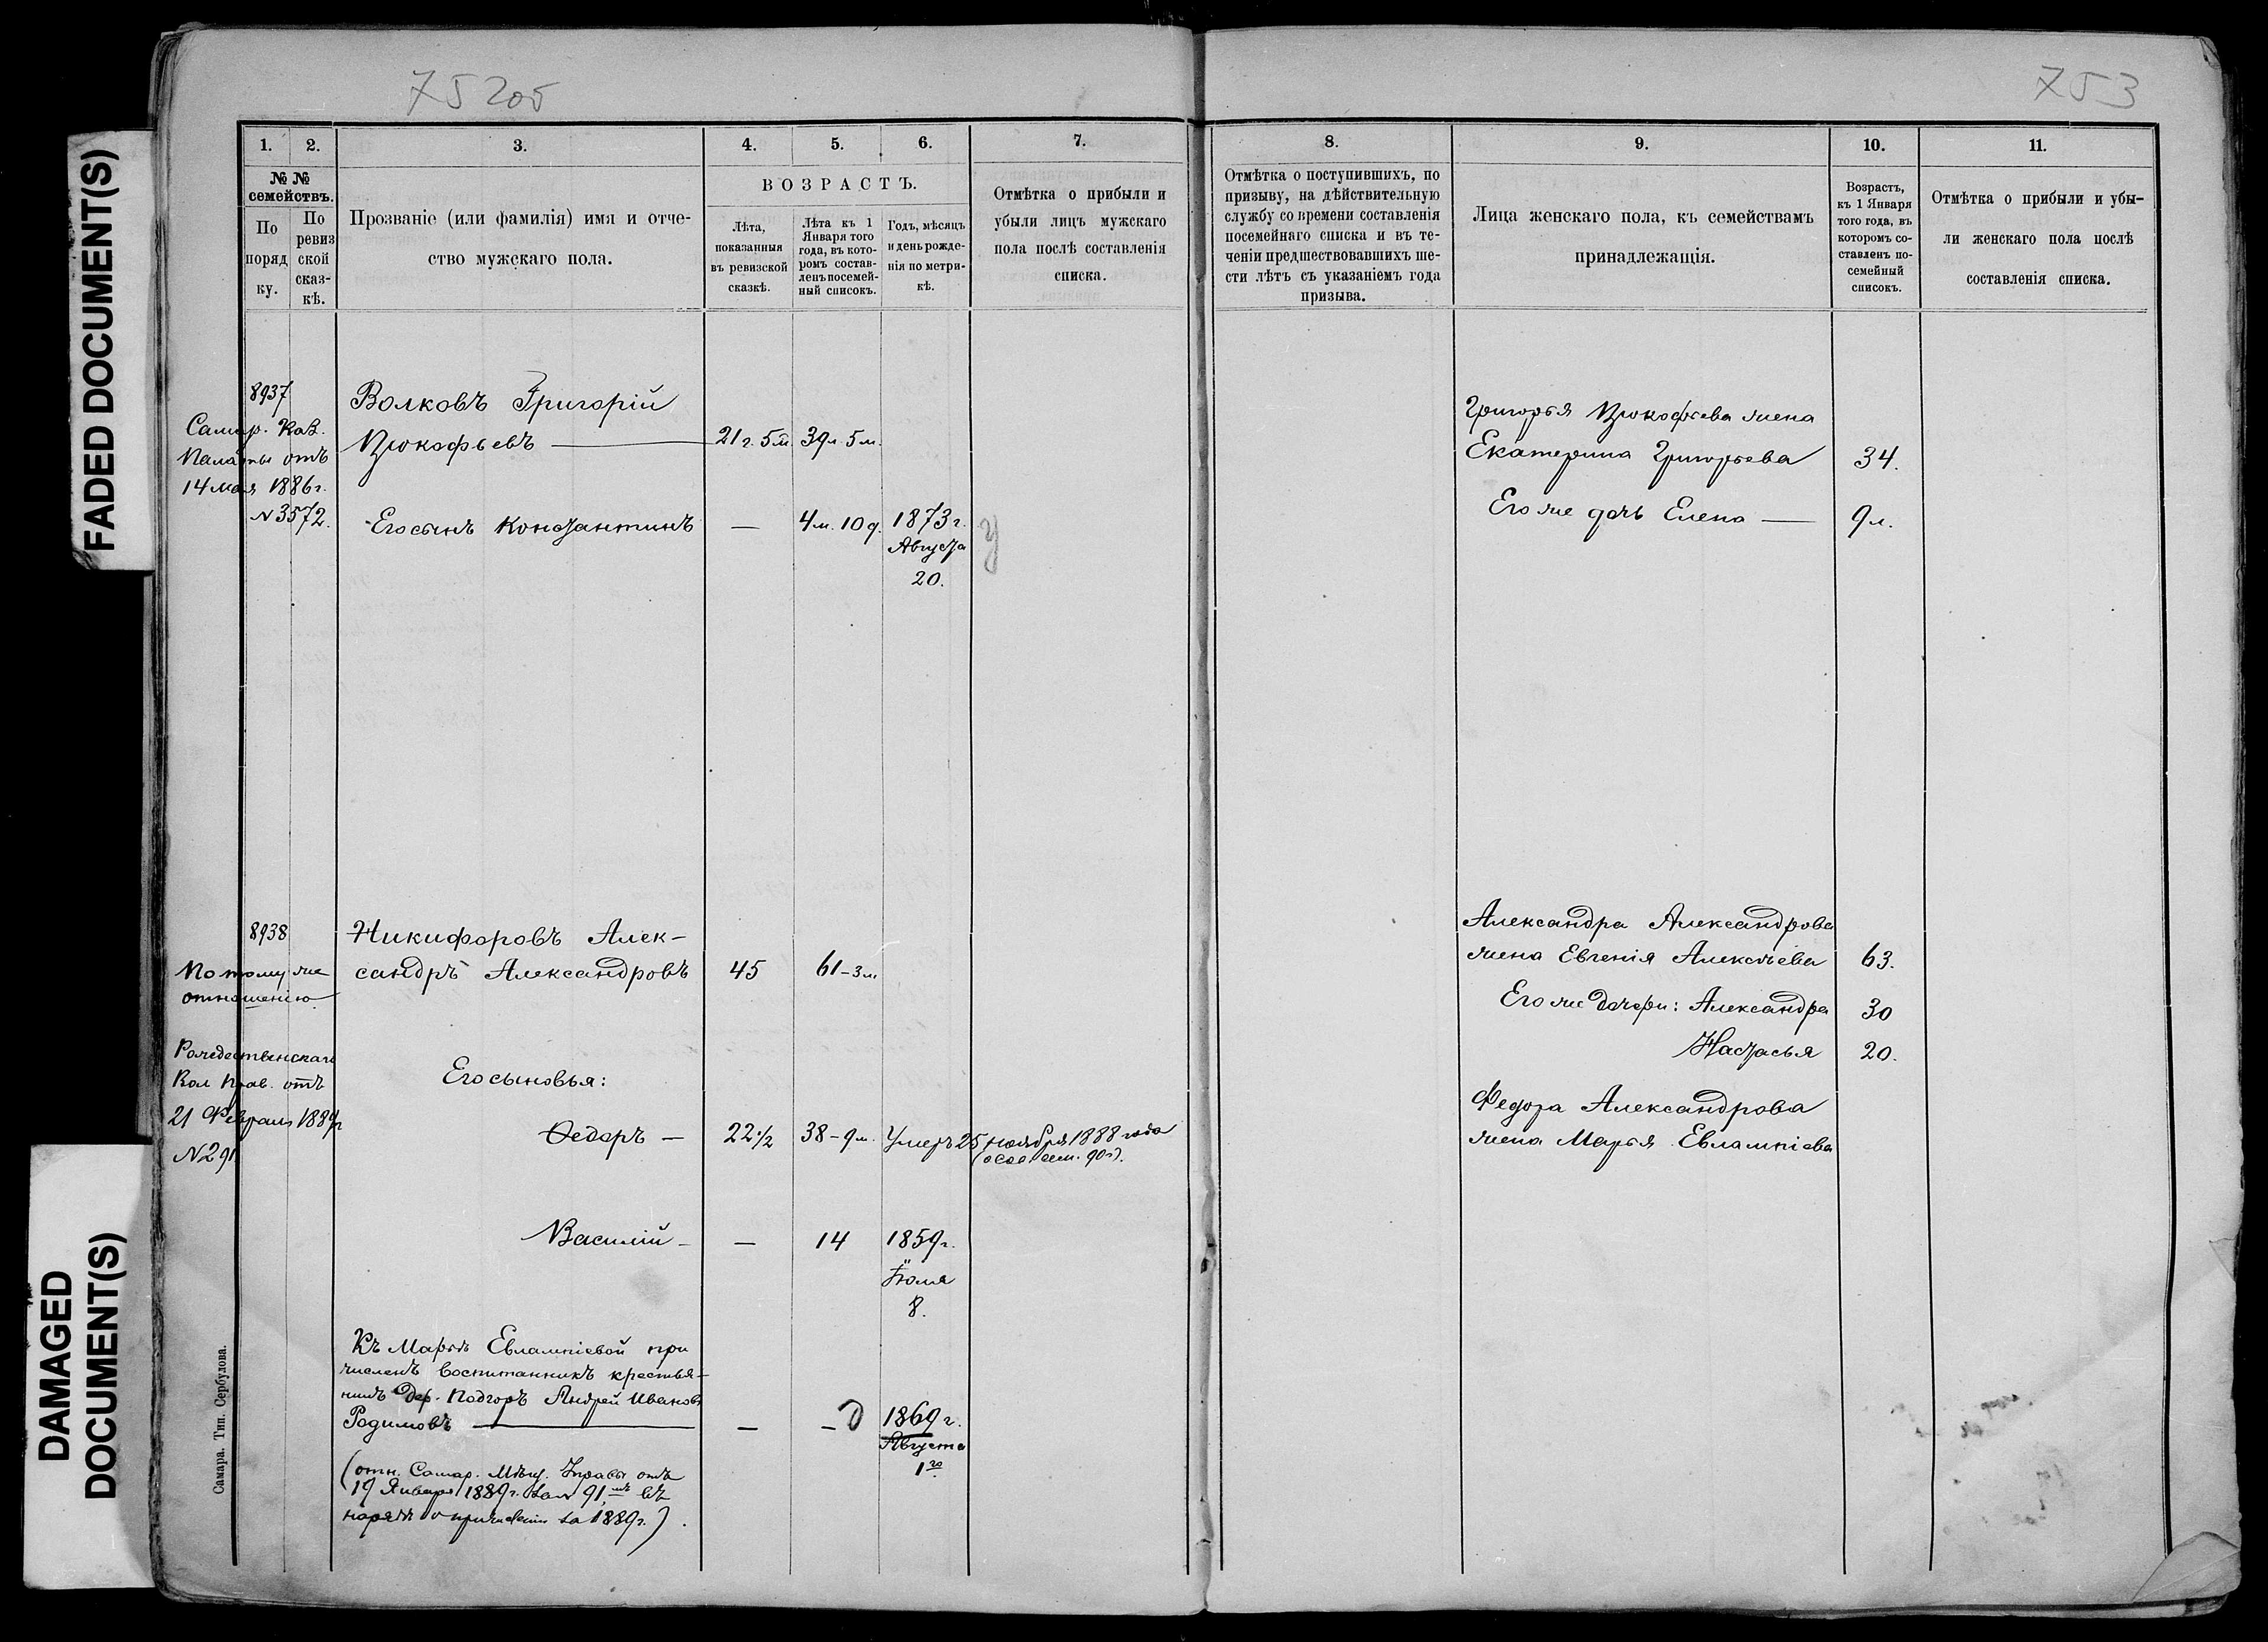 FADED DOCUMENT(S)
DAMAGED
DOCUMENT(S)
75 205
753
1.
2.
3.
4.
5.
6.
7.
8.
9.
10.
11.
№ №
семействъ.
По
поряд
ку.
По
ревиз
ской
сказ-
кѣ.
Прозваніе (или фамилія) имя и отче-
ство мужскаго пола.
ВОЗРАСТЪ.
Лѣта,
показанныя
въ ревизской
сказкѣ.
Лѣта къ 1
Января того
года, въ кото-
ромъ состав-
ленъ посемей-
ный списокъ.
Годъ, мѣсяцъ
и день рожде-
нія по метри-
кѣ.
Отмѣтка о прибыли и
убыли лицъ мужскаго
пола послѣ составленія
списка.
Отмѣтка о поступившихъ, по
призыву, на дѣйствительную
службу со времени составленія
посемейнаго списка и въ те-
ченіи предшествовавшихъ ше-
сти лѣтъ съ указаніемъ года
призыва.
Лица женскаго пола, къ семействамъ
принадлежащія.
Возрастъ,
къ 1 Января
того года, въ
которомъ со-
ставленъ по-
семейный
списокъ.
Отмѣтка о прибыли и убы-
ли женскаго пола послѣ
составленія списка.
8937
Самар. Каз.
Палаты отъ
14 мая 1886 г.
№ 3572.
Волковъ Григорій
Прокофьевъ — 21 г. 5 м. 39 л. 5 м.
Его сынъ Константинъ — 4 м. 10 д. 1873 г.
Августа
20.
Григорья Прокофьева жена
Екатерина Григорьева 34.
Его же дочь Елена — 9 л.
8938
По тому же
отношенію
Никифоровъ Алек-
сандръ Александровъ 45 61-3 м
Рождественскаго
Вол Прав. отъ
21 Февраля 1889 г
№ 291
Его сыновья:
Ѳедоръ — 22 1/2 38-9 м. Умеръ 25 ноября 1888 года
Василій — — 14 1859 г.
Іюля
8.
Къ Марьѣ Евлампіевой при
численъ воспитанникъ крестья-
нинъ дер. Подгоръ Андрей Ивановъ
Родимовъ — — — 1869 г.
Августа
1го
(отн. Самар. Мѣщ. Управы отъ
19 Января 1889 г. за № 91, въ
нарядѣ о причисленіи за 1889 г.)
Александра Александрова
жена Евгенія Алексѣева 63.
Его же дочери: Александра 30
Настасья 20.
Федора Александрова
жена Марья Евлампіева
Самара. Тип. Сербулова.